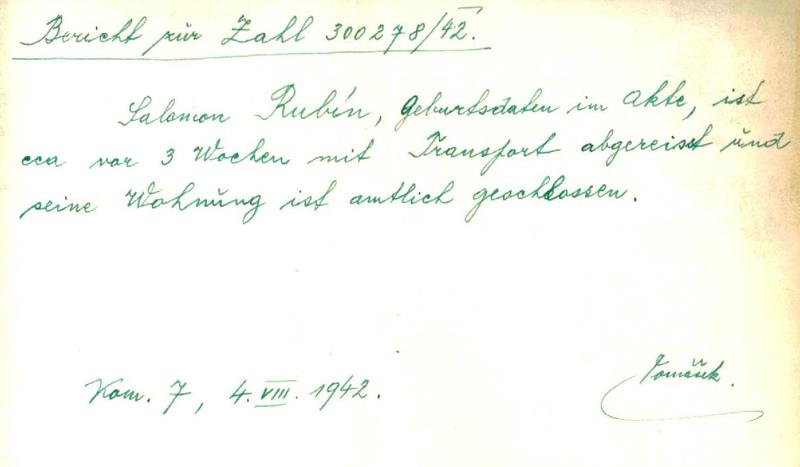 Bericht zür Zahl 300278/42.
Salomon Rubín, Geburtsdaten im Akte, ist
cca vor 3 Wochen mit Transport abgereist und
seine Wohnung ist amtlich geschlossen.
Kom. 7, 4. VIII. 1942.
Tomášek.